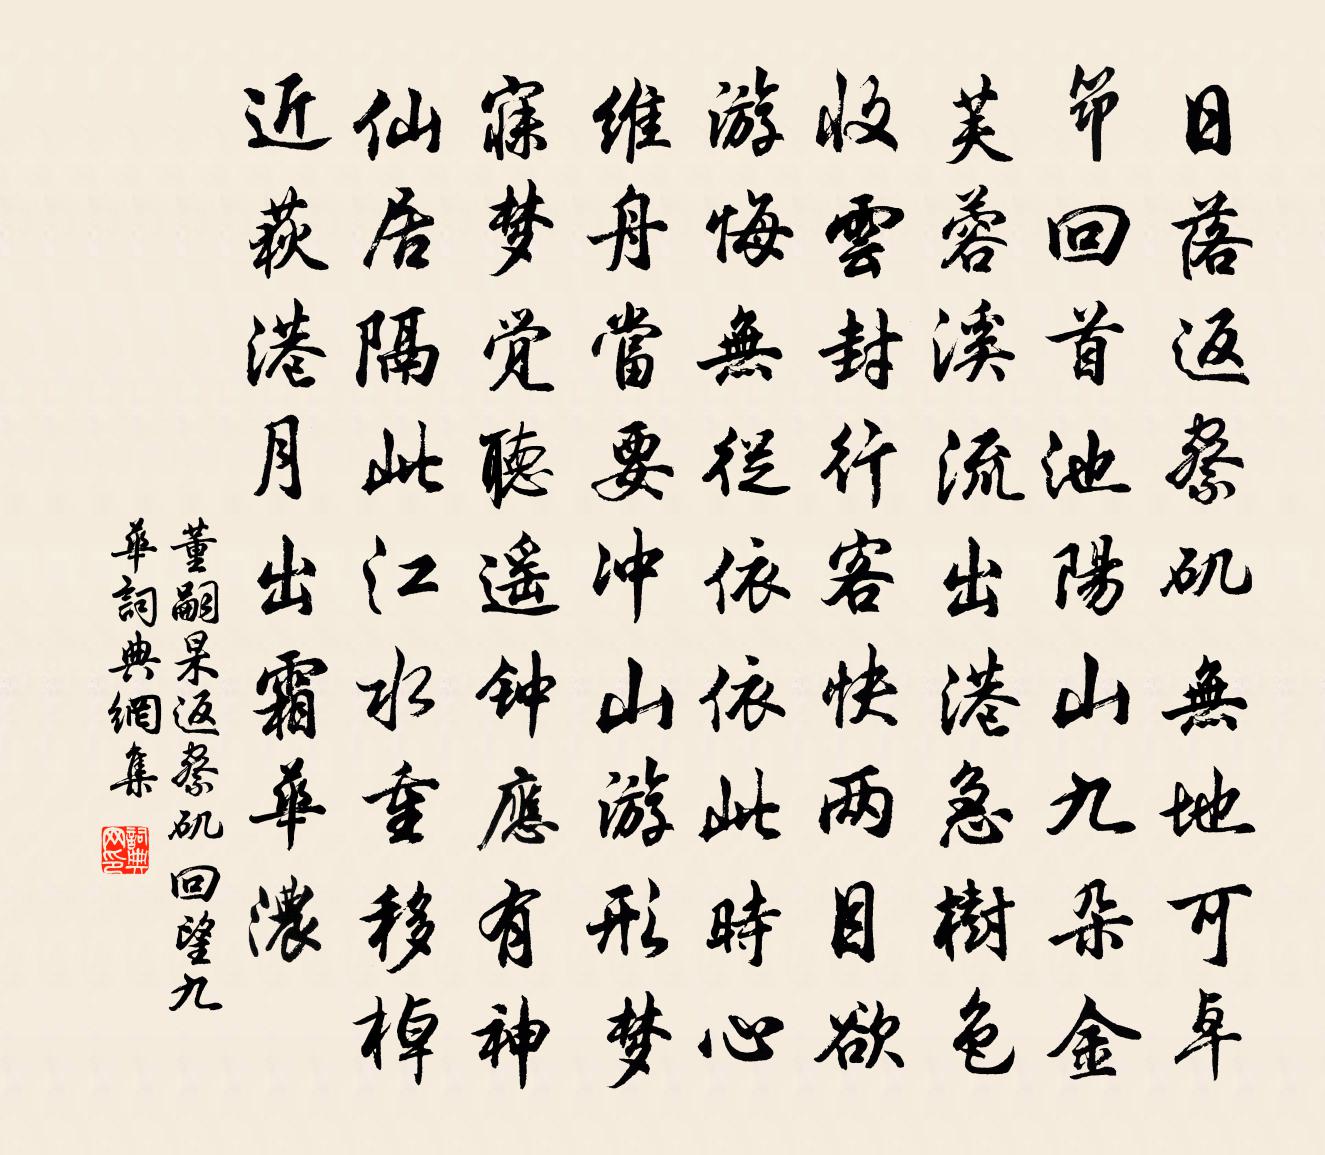 日落返祭矶無地可卓
笻回首池陽山九朵金
芙蓉溪流出港急樹色
收雲封行客快两目欲
游悔無從依依此時心
維舟當要冲山游形梦
寐梦觉聽遥钟應有神
仙居隔此江水重移棹
近荻港月出霜華濃
董嗣杲返祭矶回望九
華詞典網集
詞典
网印